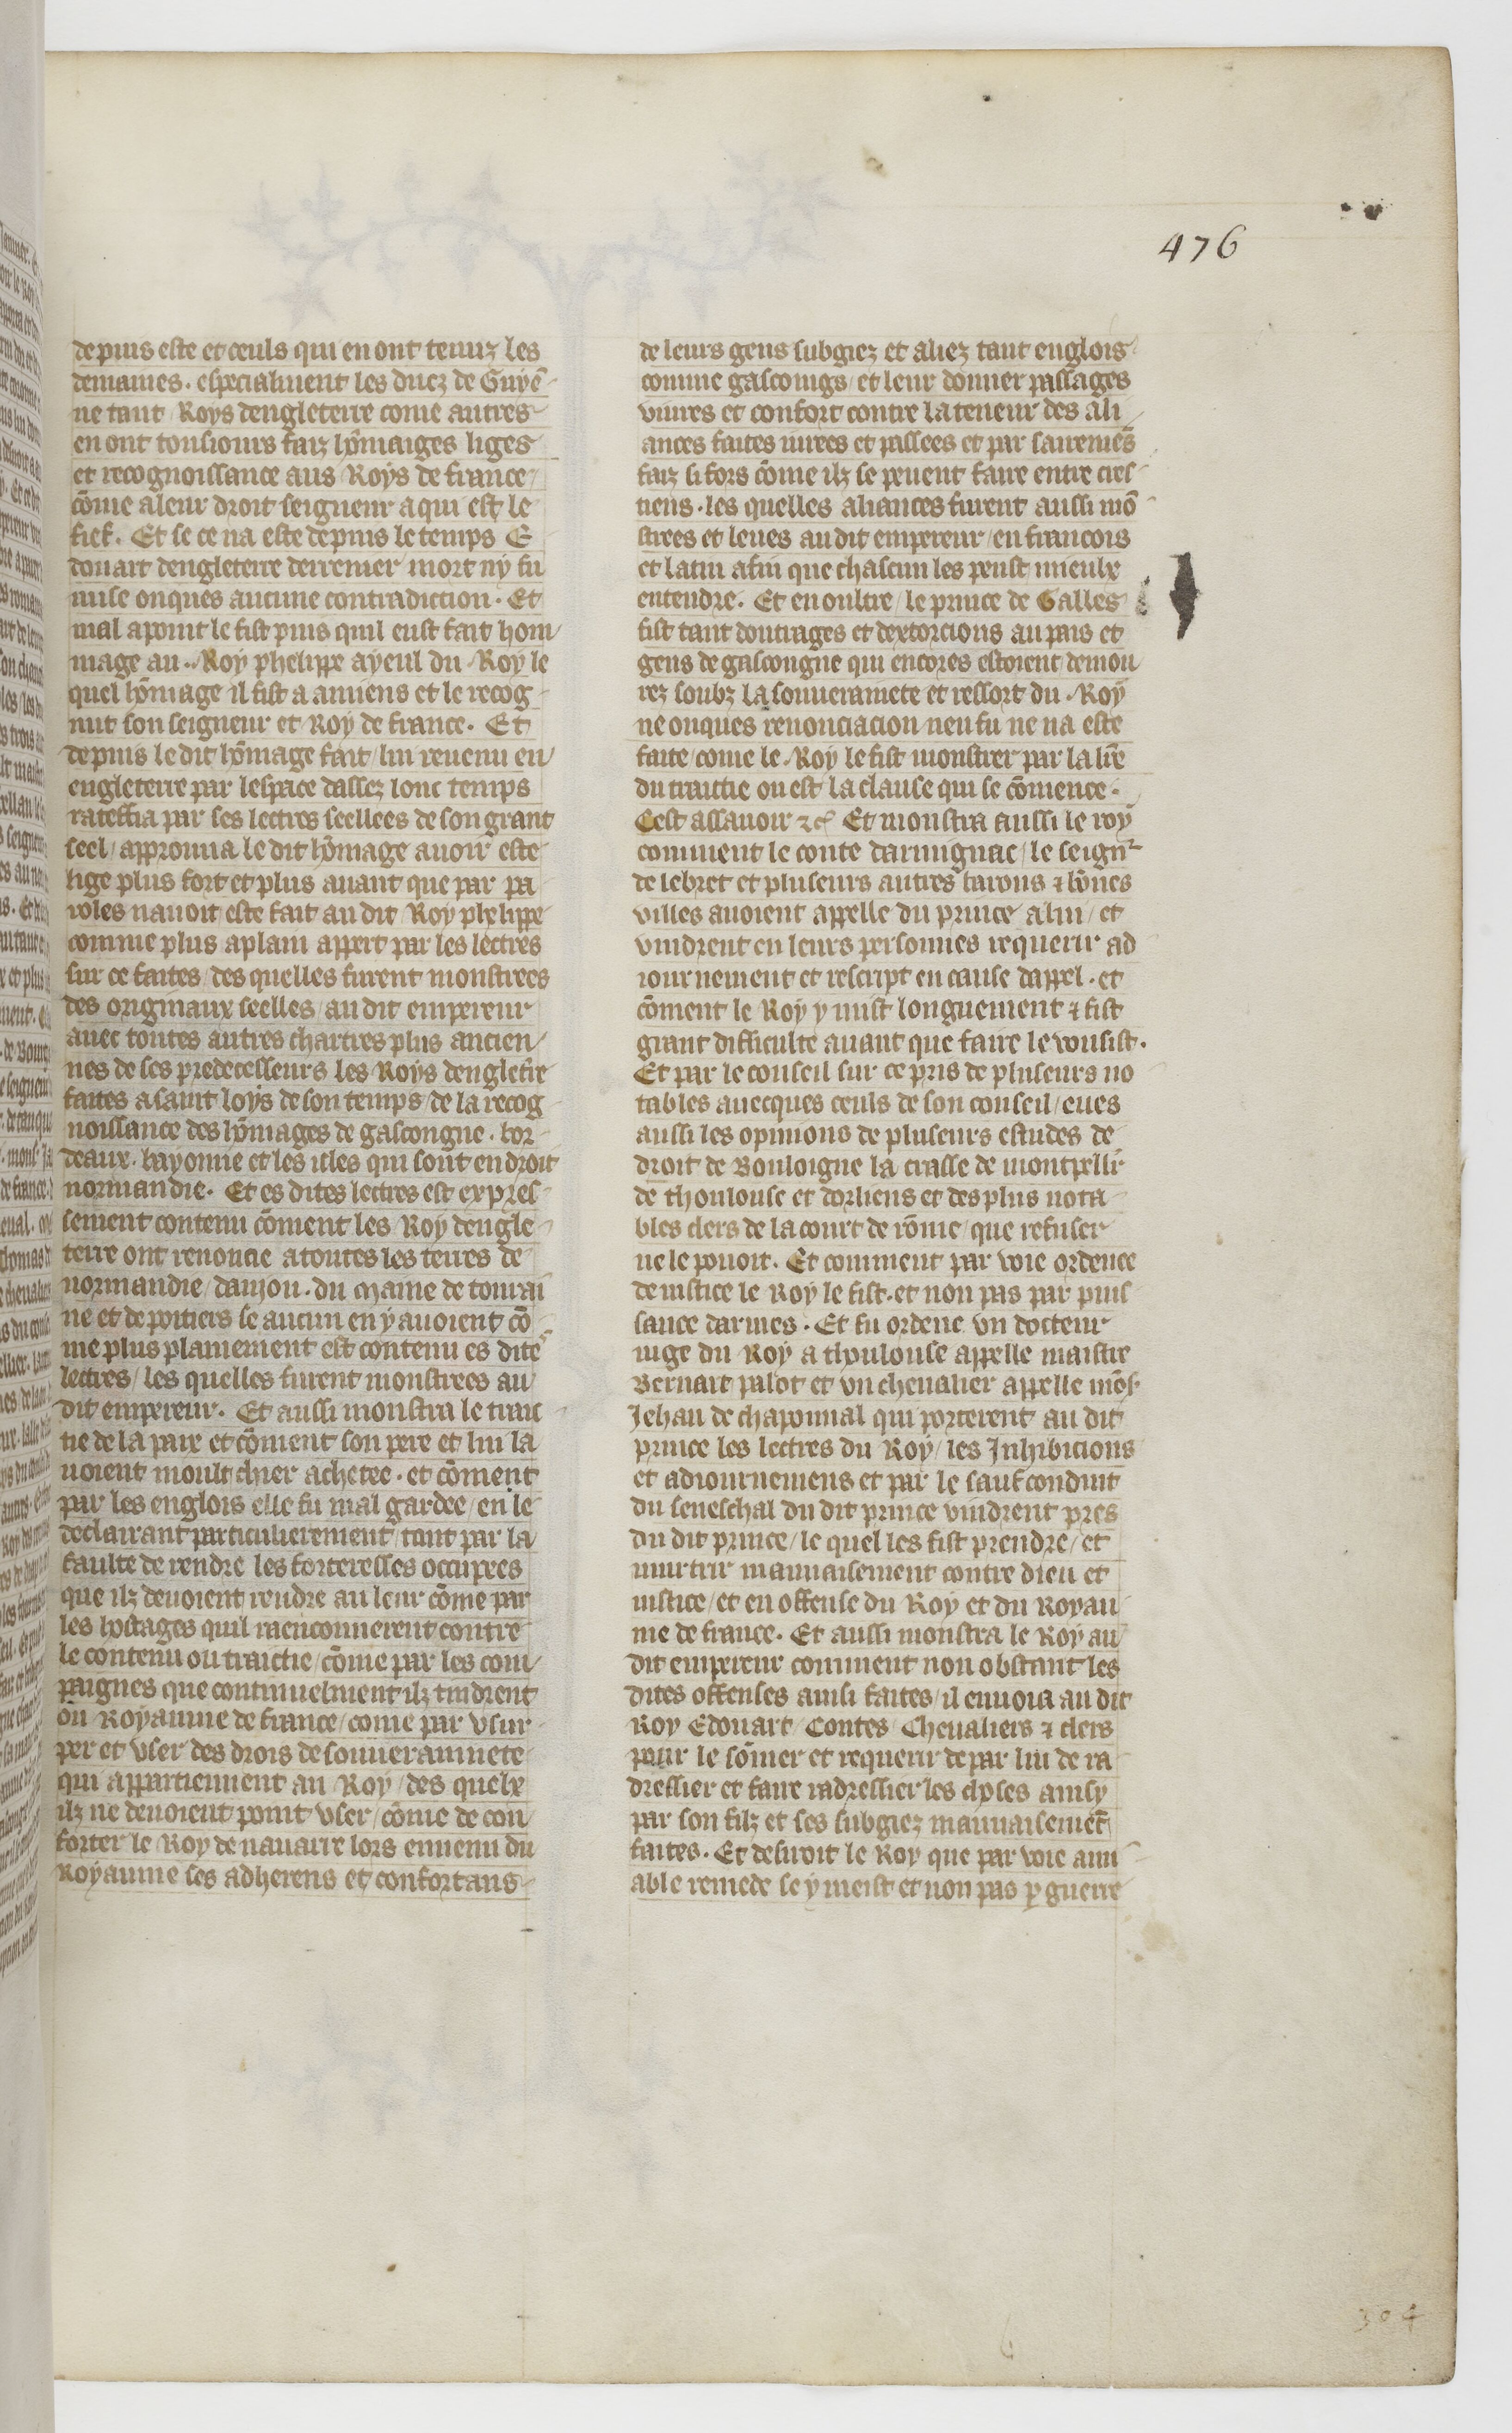 476
depuis este et ceuls qui en ont tenuz les
demaines. especialment les ducz de Guyē-
ne tant Roys dengleterre come autres
en ont tousiours faiz hōmaiges liges
et recognoissance aus Roys de france/
cōme a leur droit seigneur a qui est le
fief. Et se ce na este depuis le temps E
douart dengleterre derrenier mort ny fu
mise onques aucune contradiction. Et
mal apoint le fist puis quil eust fait hom/
mage au Roy phelippe ayeul du Roy le
quel hōmage il fist a amiens et le recog-
nut son seigneur et Roy de france. Et
depuis le dit hōmage fait/ lui reuenu en/
engleterre par lespace dassez lonc temps
rateffia par ses lectres seellees de son grant
seel/ approuua le dit hōmage auoir este
lige plus fort et plus auant que par pa
roles nauoit este fait au dit Roy phelippe
comme plus aplain appert par les lectres
sur ce faites/ des quelles furent monstrees
des originaux seelles/ au dit empereur
auec toutes autres chartres plus ancien/
nes de ses predecesseurs les Roys dengletr̄e
faites a saint loys de son temps/ de la recog
noissance des hōmages de gascongne. bor-
deaux. bayonne et les isles qui sont en droit
normandie. Et es dites lectres est expres-
sement contenu cōment les Roy dengle-
terre ont renoncie a toutes les terres de
normandie/ danjou. du maine de tourai
ne et de poitiers se aucun en y auoient cō-
me plus plainement est contenu es dites
lectres/ les quelles furent monstrees au
dit empereur. Et aussi monstra le traic
tie de la paix et cōment son pere et lui la
uoient moult chier achetee. et cōment
par les englois elle fu mal gardee/ en le
declairant particulierement/ tant par la
faulte de rendre les forteresses occupees
que ilz deuoient rendre au leur cōme par
les hostages quil raenconnerent/ contre
le contenu ou traictie/ cōme par les com/
paignes que continuelment ilz tindrent
ou Royaume de france/ come par vsur-
per et vser des drois de souuerainnete
qui appartiennent au Roy/ des quelx
ilz ne deuoient point vser/ cōme de con/
forter le Roy de nauarre lors ennemi du
Royaume ses adherens et confortans
de leurs gens subgiez et aliez tant englois
comme gascoings/ et leur donner passages
viures et confort contre la teneur des ali
ances faites iurees et passees et par sairemēs
faiz si fors cōme ilz se peuent faire entre cres-
tiens. les quelles aliances furent aussi mō
strees et leues au dit empereur/ en francois
et latin afin que chascun les peust mieulx
entendre. Et en oultre/ le prince de Galles
fist tant doutrages et dextorcions au pais et
gens de gascongne qui encores estoient demou
rez soubz la souuerainete et ressort du Roy
ne onques renonciacion nen fu ne na este
faite/ come le Roy le fist monstrer par la lr̄e
du traictie ou est la clause qui se cōmence.
Cest assauoir ⁊c̄ Et monstra aussi le roy
comment le conte darmignac/ le seignr
de lebret et pluseurs autres barons ⁊ bōnes
villes auoient appelle du prince a lui/ et
vindrent en leurs personnes requerir ad
iournement et rescript en cause dappel. et
cōment le Roy y mist longuement ⁊ fist
grant difficulte auant que faire le vousist.
Et par le conseil sur ce pris de pluseurs no
tables auecques ceuls de son conseil/ eues
aussi les opinions de pluseurs estudes de
droit de Bouloigne la crasse de montpellr̄
de thoulouse et dorliens et des plus nota-
bles clers de la court de rōme/ que refuser
ne le pouoit. Et comment par voie ordenee
de iustice le Roy le fist. et non pas par puis
sance darmes. Et fu ordene vn docteur
iuge du Roy a thoulouse appelle maistre
Bernart palot et vn cheualier appelle mōs.
Jehan de chaponual qui porterent au dit
prince les lectres du Roy/ les Inhibicions
et adiournemens et par le sauf conduit
du seneschal du dit prince vindrent pres
du dit prince/ le quel les fist prendre/ et
murtrir mauuaisement contre dieu et
iustice/ et en offense du Roy et du Royau
me de france. Et aussi monstra le Roy au
dit empereur comment non obstant les
dites offenses ainsi faites/ il enuoia au dit
Roy Edouart/ Contes/ Cheualiers ⁊ clers
pour le sōmer et requerir de par lui de ra
dressier et faire radressier les choses ainsy
par son filz et ses subgiez mauuaisemēt
faites. Et desiroit le Roy que par voie ami
able remede se y meist et non pas ꝑ guerre
304